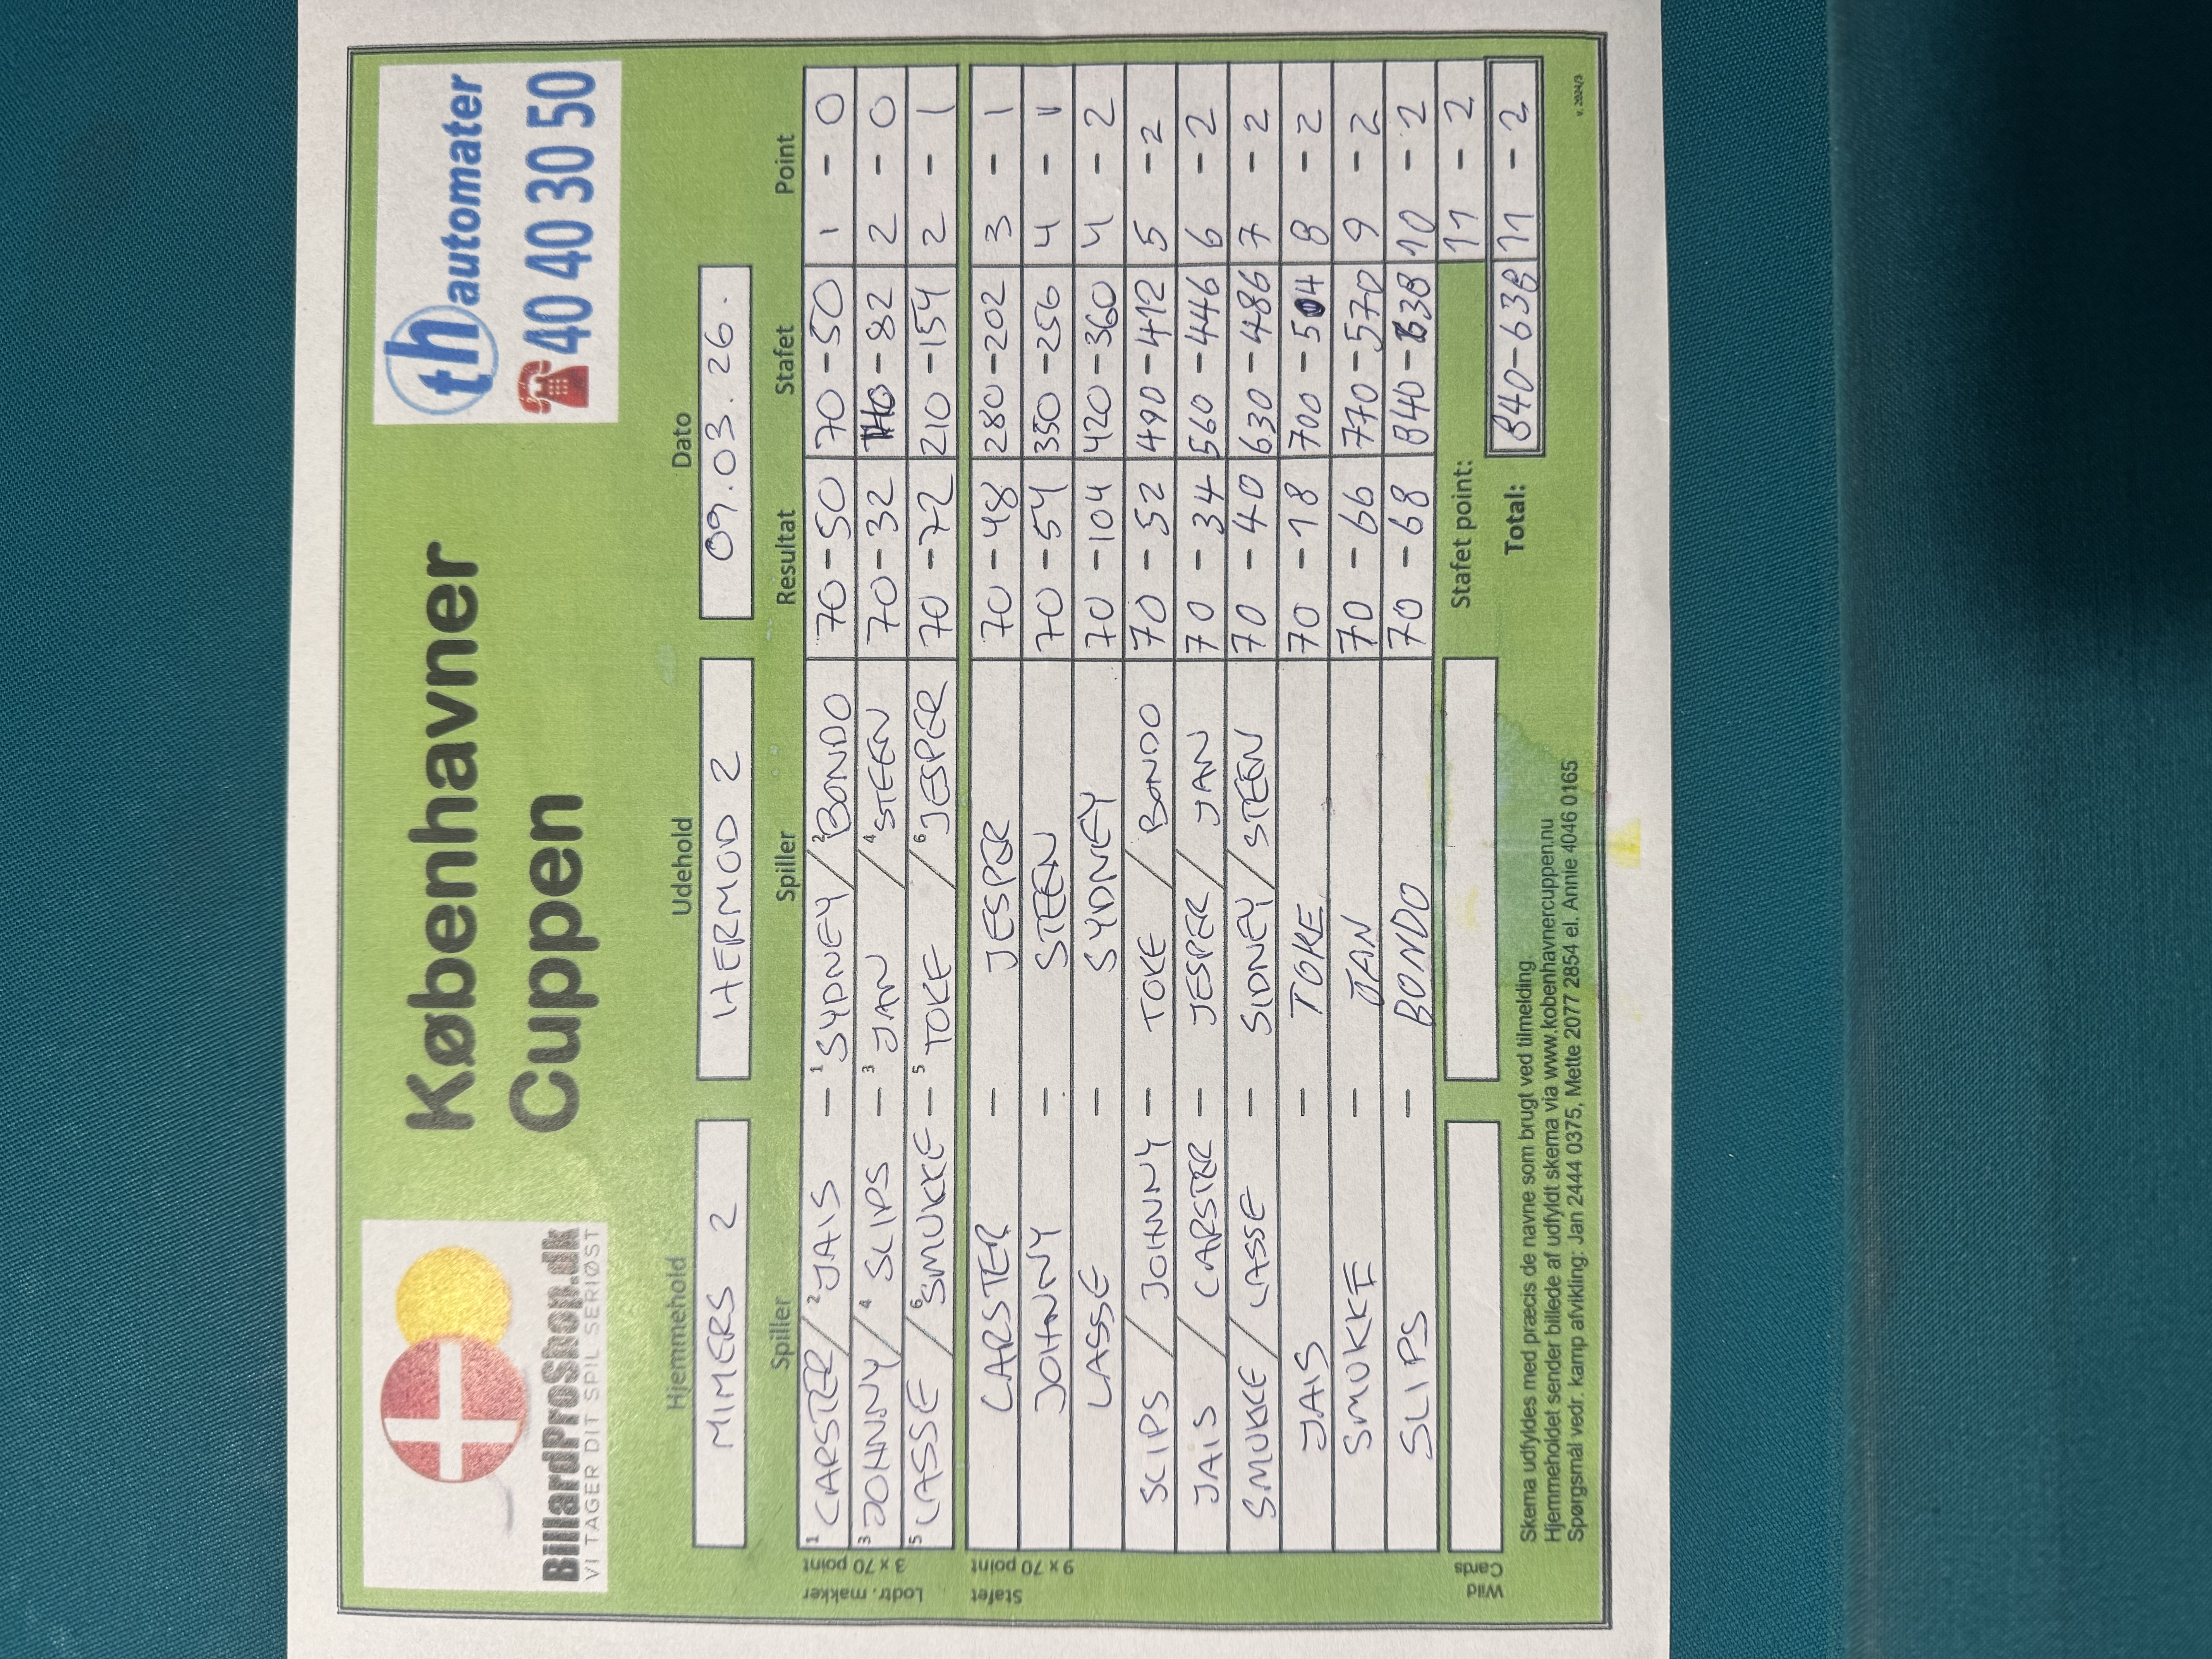 BillardProShop.dk
VI TAGER DIT SPIL SERIØST
Københavner
Cuppen
th automater
40 40 30 50
Hjemmehold Udehold Dato
MIMERS 2 HERMOD 2 09.03.26.
Spiller Spiller Resultat Stafet Point
Lodtr. makker 3 x 70 point
1 CARSTER / 2 JAIS - 1 SYDNEY / 2 BONDO 70-50 70-50 1 - 0
3 JOHNNY / 4 SLIPS - 3 JAN / 4 STEEN 70-32 140-82 2 - 0
5 LASSE / 6 SMUKKE - 5 TOKE / 6 JESPER 70-72 210-154 2 - 1
Stafet 9 x 70 point
CARSTER - JESPER 70-48 280-202 3 - 1
JOHNNY - STEEN 70-54 350-256 4 - 1
LASSE - SYDNEY 70-104 420-360 4 - 2
SLIPS / JOHNNY - TOKE / BONDO 70-52 490-412 5 - 2
JAIS / CARSTER - JESPER / JAN 70-34 560-446 6 - 2
SMUKKE / LASSE - SIDNEY / STEEN 70-40 630-486 7 - 2
JAIS - TOKE 70-18 700-504 8 - 2
SMUKKE - JAN 70-66 770-570 9 - 2
SLIPS - BONDO 70-68 840-638 10 - 2
Wild Cards
Stafet point: 11 - 2
Total: 840-638 11 - 2
Skema udfyldes med præcis de navne som brugt ved tilmelding
Hjemmeholdet sender billede af udfyldt skema via www.kobenhavnercuppen.nu
Spørgsmål vedr. kamp afvikling: Jan 2444 0375, Mette 2077 2854 el. Annie 4046 0165
v. 2024/3